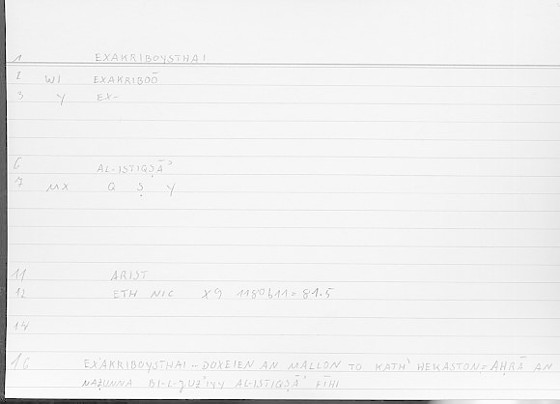 1 EXAKRIBOYSTHAI
2 WI EXAKRIBOŌ
3 Y EX-
6 AL-ISTIQṢĀʾ
7 MX Q Ṣ Y
11 ARIST
12 ETH NIC X9 1180b11= 81.5
14
16 EXAKRIBOYSTHAI – DOXEIEN AN MALLON TO KATH' HEKASTON= AḤRĀ AN
NAẒUNNA BI-L-ǦUZʾIYY AL-ISTIQṢĀʾ FĪHI